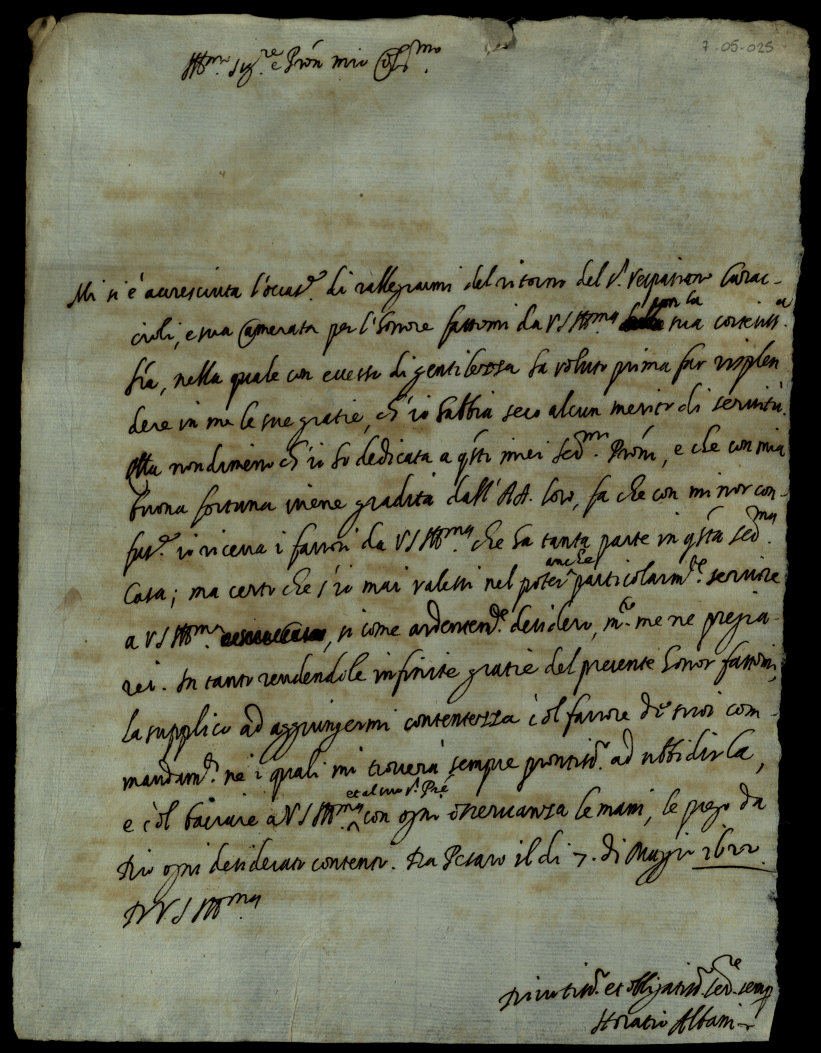 7-05-025
Ill.mo Sig.re e Pron mio Col.mo
Mi si è accresciuta l'occas.e di rallegrarmi del ritorno del S.r Vespasiano Carac-
cioli, e sua Camerata per l'honore fattomi da VS Ill.ma con la sua cortesiss.a
fia, nella quale con eccesso di gentilezza ha voluto prima far risplen
dere in me le sue gratie, ch'io habbia seco alcun merito di servitù.
Ella nondimeno ch'io ho dedicata a q'sti miei Ser.mi Proni, e che con mia
buona fortuna viene gradita dall'AA. loro, fa che con minor con-
fus.e io riceva i favori da VS Ill.ma che ha tanta parte in q'sta Ser.ma
Casa; ma certo che s'io mai valessi nel poter anche particolarm.te servire
a VS Ill.ma, si come ardentem.te desidero, m.to me ne pregia-
rei. In tanto rendendole infinite gratie del presente honor fattomi,
la supplico ad aggiungermi contentezza col favore de suoi com-
mandam.ti ne i quali mi troverà sempre prontiss.o ad ubbidirla,
e col baciare a VS Ill.ma et al suo S.r Pre con ogni osservanza le mani, le prego da
Dio ogni desiderato contento. Da Pesaro il di 7. di Maggio 1622
Di VS Ill.ma
Divotiss.o et obligatiss.o Ser.re semp
Horatio Albani